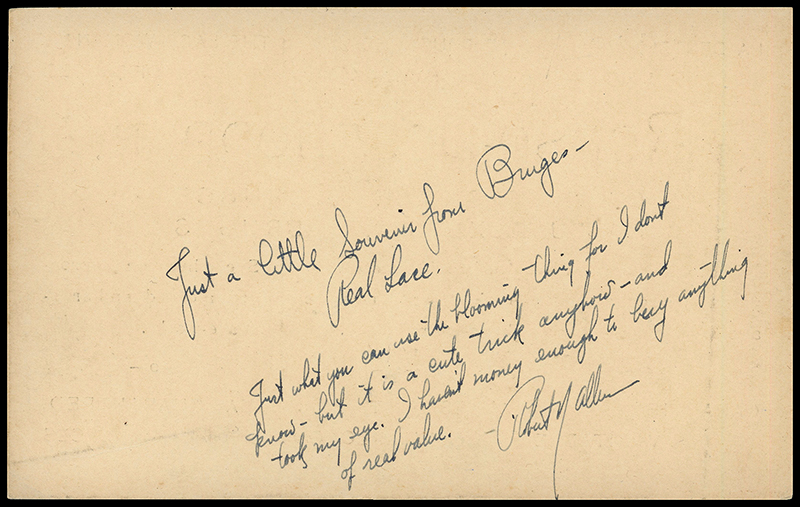 Just a little Souvenir from Bruges—
Real Lace.
Just what you can use the blooming thing for I dont
know - but it is a cute trick anyhow - and
took my eye. I haven't money enough to buy anything
of real value.
- Robert